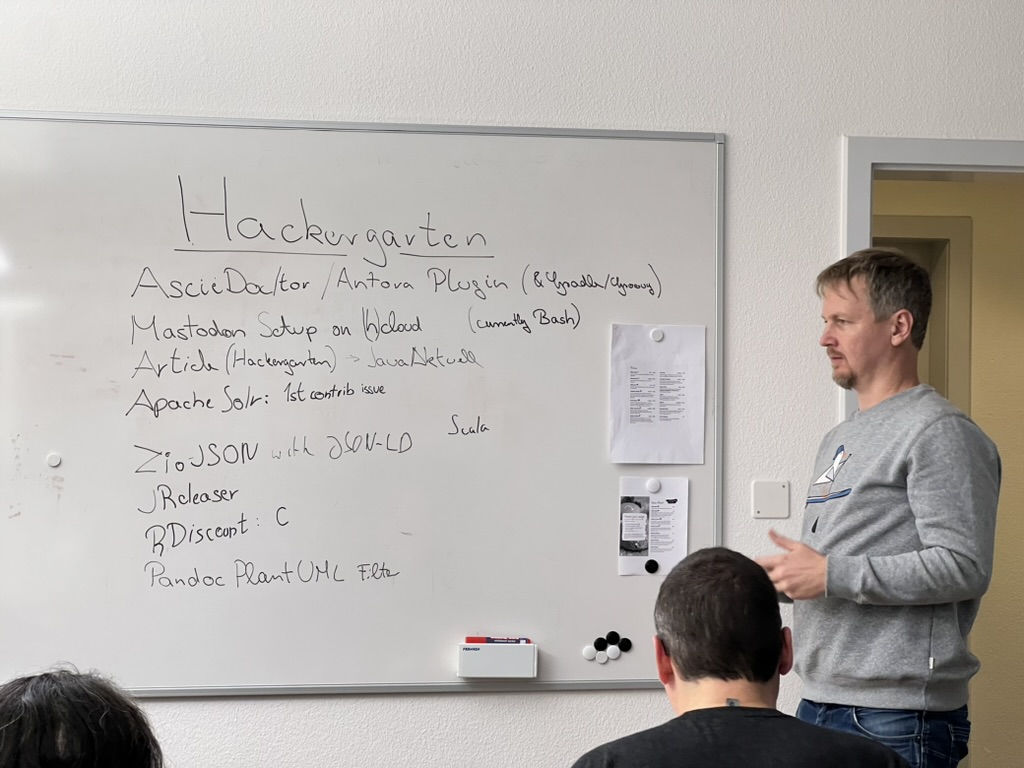 Hackergarten
AsciiDoctor / Antora Plugin (& Gradle/Groovy)
Mastodon Setup on (h)cloud (currently Bash)
Article (Hackergarten) → JavaAktuell
Apache Solr: 1st contrib issue
Zio-JSON with JSON-LD Scala
JReleaser
RDiscount: C
Pandoc PlantUML Filter